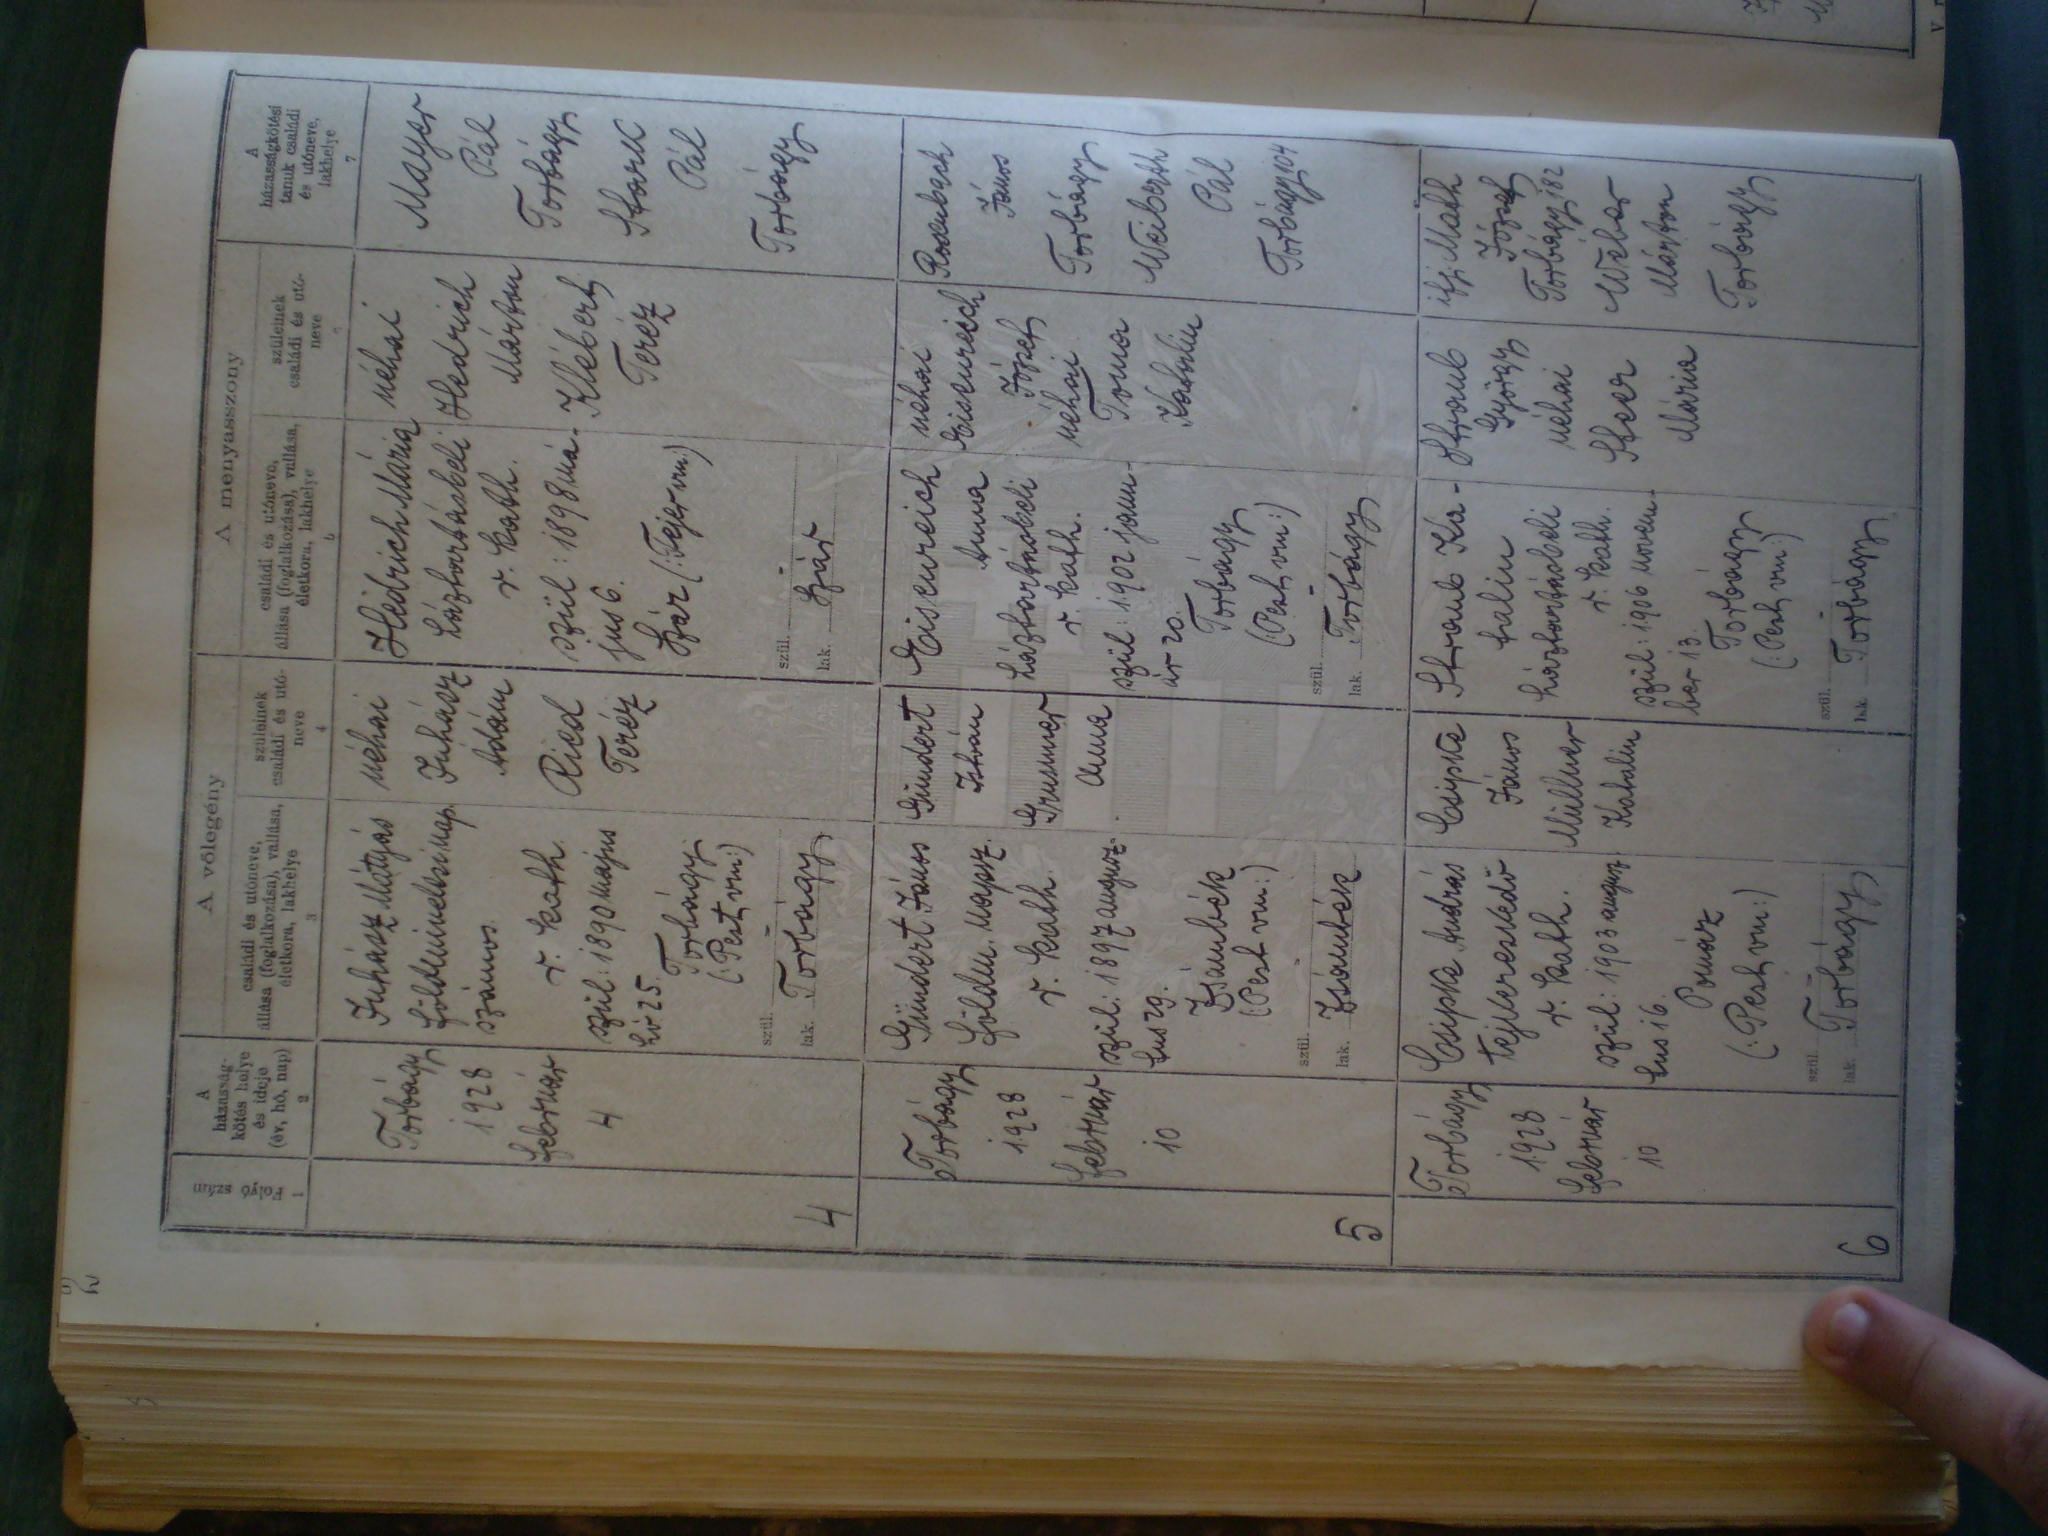 A
házasságkötési
tanuk családi
és utóneve,
lakhelye
7
A menyasszony
szüleinek
családi és utó-
neve
családi és utóneve,
állása (foglalkozása), vallása,
életkora, lakhelye
A vőlegény
szüleinek
családi és utó-
neve
4
családi és utóneve,
állása (foglalkozása), vallása,
életkora, lakhelye
3
A
házasság-
kötés helye
és ideje
(év, hó, nap)
2
Folyó szám
1
4
Torbágy
1928
február
4
Juhász Mátyás
földmívelési nap
számos
r. kath.
szül: 1890 május
hó 25.
Torbágy
(:Pest vm:)
szül.
lak. Torbágy
néhai
Juhász
Ádám
Ried
Teréz
Hédrich Mária
háztartásbeli
r. kath.
szül: 1898 má-
jus 6.
Szár (:Fejér vm:)
szül.
lak. Szár
néhai
Hedrich
Márton
Klébert
Teréz
Mayer
Pál
Torbágy
Stark
Pál
Torbágy
5
Torbágy
1928
február
10
Gündert János
földm. napsz.
r. kath.
szül: 1897 augusz-
tus 29.
Zsámbék
(Pest vm:)
szül.
lak. Zsámbék
Gündert
István
Anna
Eisenreich
Anna
háztartásbeli
r. kath.
szül: 1902 janu-
ár 20.
Torbágy
(:Pest vm:)
szül.
lak. Torbágy
néhai
Eisenreich
József
néhai
Toma
Katalin
János
Torbágy
Pál
Torbágy 104
6
Torbágy
1928
február
10
Csipke András
tejkereskedő
r. kath.
szül: 1903 augusz-
tus 16.
Pomáz
(:Pest vm:)
szül.
lak Torbágy
Csipke
János
Müllner
Katalin
Straub Ka-
talin
háztartásbeli
r. kath.
szül: 1906 novem-
ber 13.
Torbágy
(:Pest vm:)
szül.
lak Torbágy
Straub
György
néhai
Steer
Mária
ifj. Math
József
Torbágy 182
Wéber
Márton
Torbágy